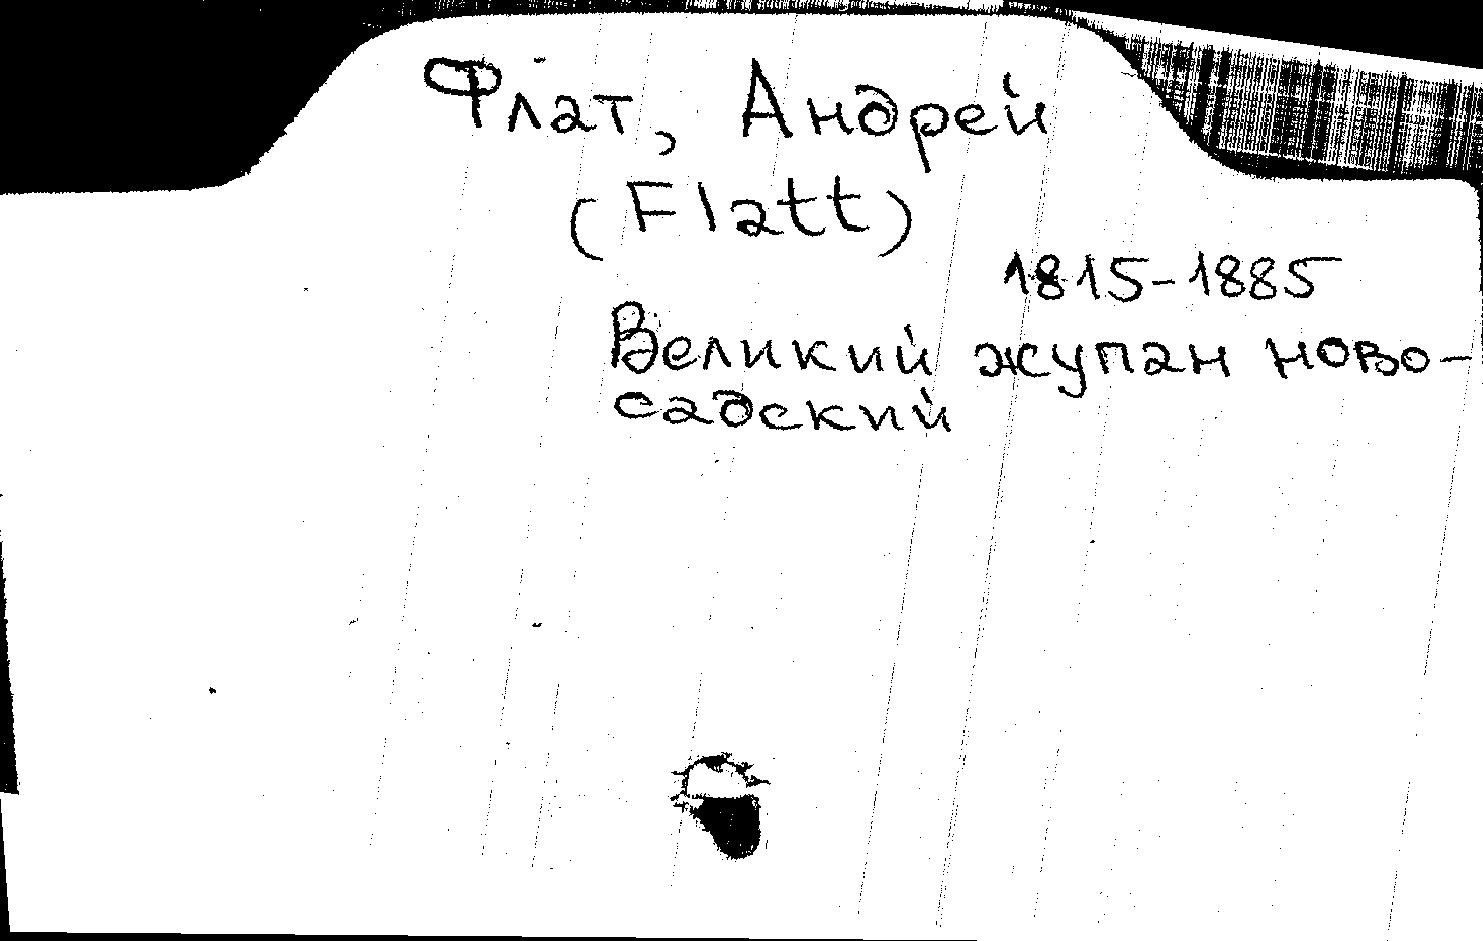 Флат, Андрей
(Flatt)
1815-1885
Великий жупан ново-
садский